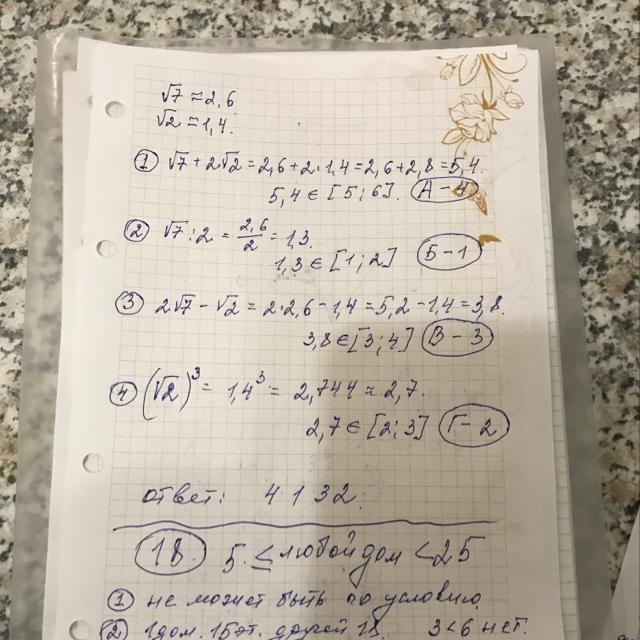 √7 ≈ 2,6
√2 ≈ 1,4.
① √7 + 2√2 = 2,6 + 2·1,4 = 2,6 + 2,8 = 5,4.
5,4 ∈ [5; 6]. А – 4
② √7 : 2 = 2,6/2 = 1,3.
1,3 ∈ [1; 2] Б – 1
③ 2√7 – √2 = 2·2,6 – 1,4 = 5,2 – 1,4 = 3,8.
3,8 ∈ [3; 4] В – 3
④ (√2)³ = 1,4³ = 2,744 ≈ 2,7.
2,7 ∈ [2; 3] Г – 2
ответ: 4132.
18. 5 ≤ любой дом < 25
① не может быть по условию
② 1 дом. 15эт. другой 3 < 6 нет.